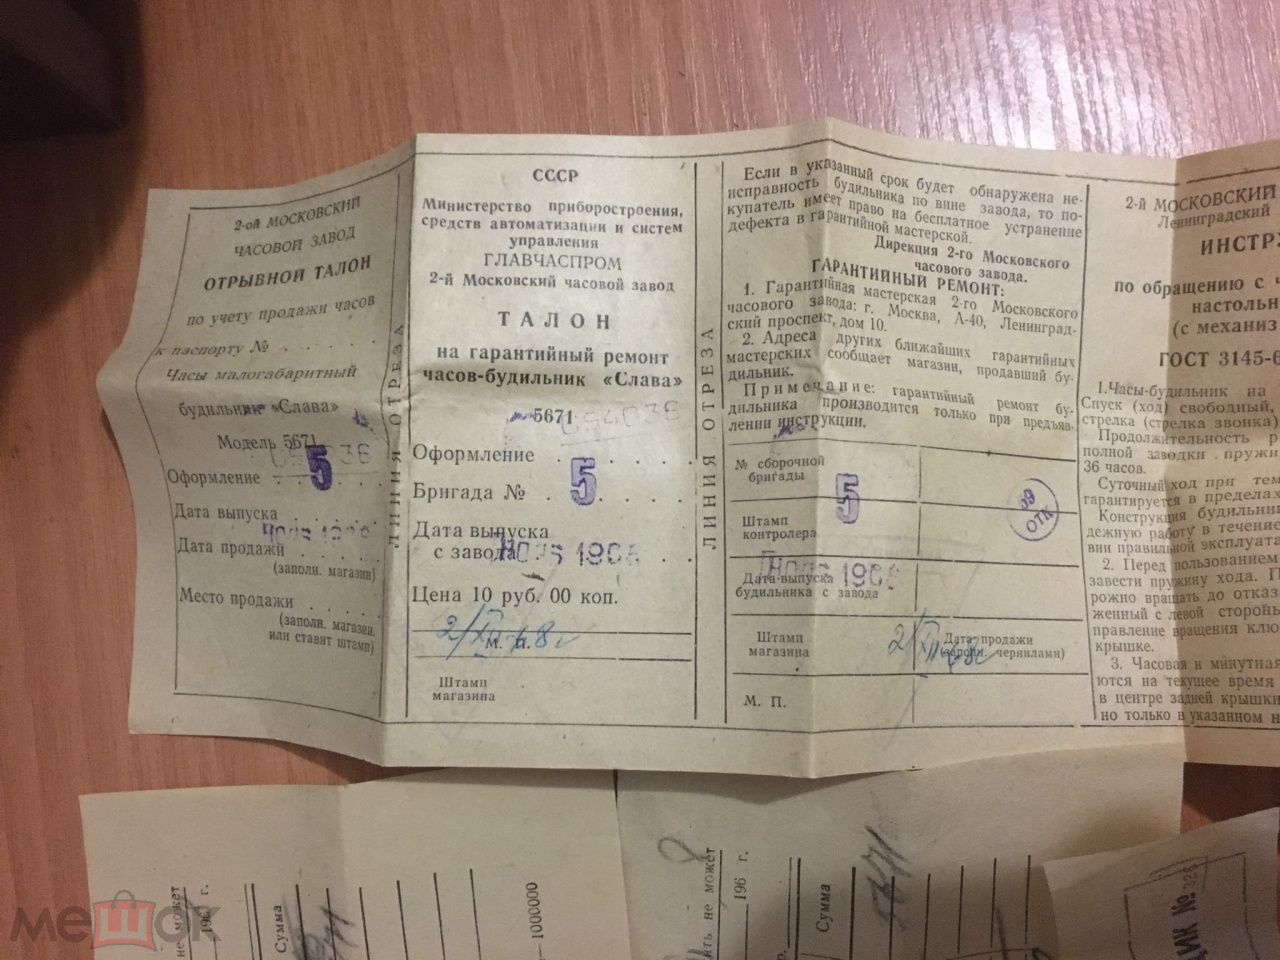 2-ой МОСКОВСКИЙ
ЧАСОВОЙ ЗАВОД
ОТРЫВНОЙ ТАЛОН
по учету продажи часов
к паспорту № . . . . . .
Часы малогабаритный
будильник «Слава»
Модель 5671
5
Оформление . . . . .
Дата выпуска . . . . .
Дата продажи . . . . .
(заполн. магазин)
Место продажи . . . . .
(заполн. магазин.
или ставит штамп)
ЛИНИЯ ОТРЕЗА
СССР
Министерство приборостроения,
средств автоматизации и систем
управления
ГЛАВЧАСПРОМ
2-й Московский часовой завод
ТАЛОН
на гарантийный ремонт
часов-будильник «Слава»
5671
Оформление . . . . . .
Бригада № . 5 . . . .
Дата выпуска
с завода
Цена 10 руб. 00 коп.
2/XII-68г
М. П.
Штамп
магазина
ЛИНИЯ ОТРЕЗА
Если в указанный срок будет обнаружена не-
исправность будильника по вине завода, то по-
купатель имеет право на бесплатное устранение
дефекта в гарантийной мастерской.
Дирекция 2-го Московского
часового завода.
ГАРАНТИЙНЫЙ РЕМОНТ:
1. Гарантийная мастерская 2-го Московского
часового завода: г. Москва, А-40, Ленинград-
ский проспект, дом 10.
2. Адреса других ближайших гарантийных
мастерских сообщает магазин, продавший бу-
дильник.
Примечание: гарантийный ремонт бу-
дильника производится только при предъяв-
лении инструкции.
№ сборочной
бригады
5
Штамп
контролера
39
ОТК
Дата выпуска
будильника с завода
Штамп
магазина
2/XII-68г
Дата продажи
(заполн. чернилами)
М. П.
2-й МОСКОВСКИЙ
Ленинградский
ИНСТРУ
по обращению с ч
настольн
(с механиз
ГОСТ 3145-6
1.Часы-будильник на
Спуск (ход) свободный,
стрелка (стрелка звонка)
Продолжительность р
полной заводки пружи
36 часов.
Суточный ход при тем
гарантируется в пределах
Конструкция будильник
дежную работу в течение
вии правильной эксплуата
2. Перед пользованием
завести пружину хода. П
рожно вращать до отказ
женный с левой стороны
правление вращения клю
крышке.
3. Часовая и минутная
ются на текущее время
в центре задней крышки
но только в указанном н
не может
196 г.
Сумма
1000000
8
ить не может
196 г.
Сумма
5671
ЩИК № 326
мешок